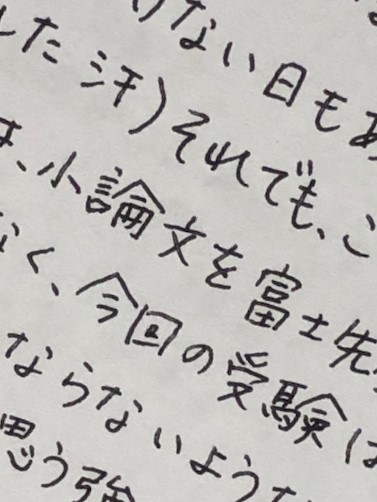 けない日もあ
した汗)それでも、こ
は、小論文を富士先
なく、今回の受験は
ならないような
思う強